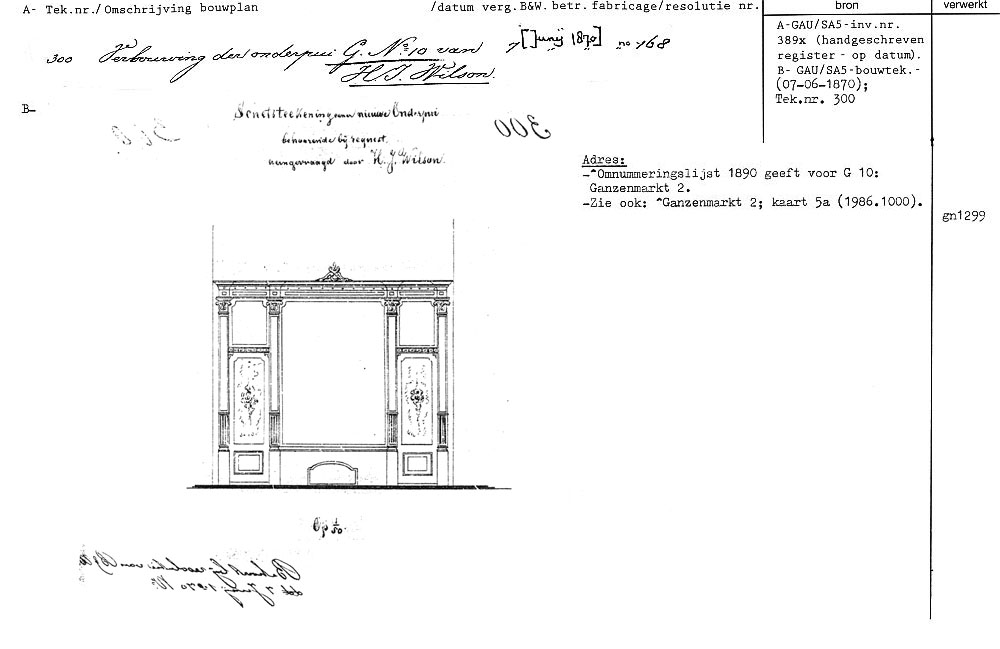 A- Tek.nr./Omschrijving bouwplan /datum verg.B&W. betr.fabricage/resolutie nr. bron verwerkt
300 Verbouwing der onderpui G. No 10 van
H.J. Wilson.
7 [J]unij 1870] no 168
A-GAU/SA5-inv.nr.
389x (handgeschreven
register - op datum).
B- GAU/SA5-bouwtek.-
(07-06-1870);
Tek.nr. 300
B-
Schetsteekening eener nieuwe Onderpui
behoorende bij request,
aangevraagd door H. J. Wilson.
300
Adres:
-^Omnummeringslijst 1890 geeft voor G 10:
Ganzenmarkt 2.
-Zie ook: ^Ganzenmarkt 2; kaart 5a (1986.1000).
gn1299
Op 1/50.
Behoort bij resolutie van B&W
dd 7 Junij 1870 No.